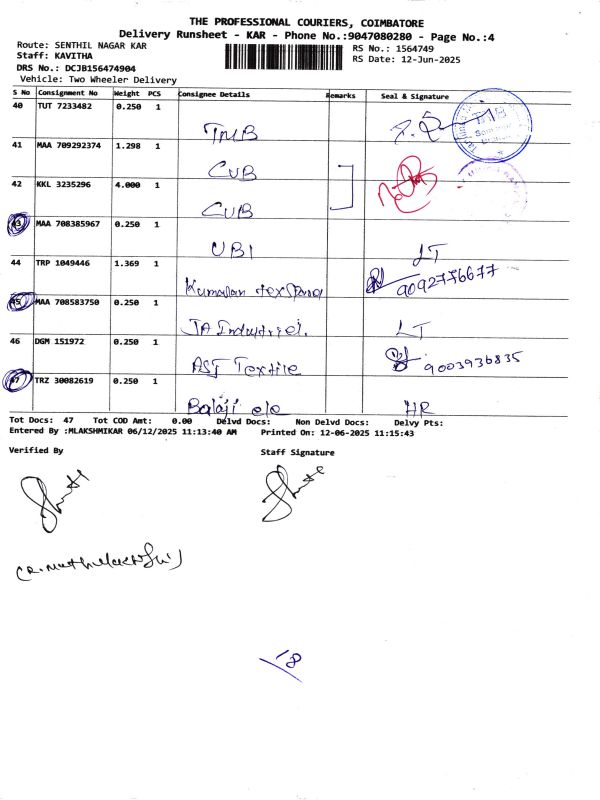 THE PROFESSIONAL COURIERS, COIMBATORE
Delivery Runsheet - KAR - Phone No.:9047080280 - Page No.:4
Route: SENTHIL NAGAR KAR
RS No.: 1564749
Staff: KAVITHA
RS Date: 12-Jun-2025
DRS No.: DCJB156474904
Vehicle: Two Wheeler Delivery
S No Consignment No Weight PCS Consignee Details Remarks Seal & Signature
40 TUT 7233482 0.250 1
TMB
41 MAA 709292374 1.298 1
CUB
42 KKL 3235296 4.000 1
CUB
43 MAA 708385967 0.250 1
UBI LT
44 TRP 1049446 1.369 1
9092776677
45 MAA 708583750 0.250 1
JA LT
46 DGM 151972 0.250 1
ASI Textile 9003936835
47 TRZ 30082619 0.250 1
Balaji ele HR
Tot Docs: 47 Tot COD Amt: 0.00 Delvd Docs: Non Delvd Docs: Delvy Pts:
Entered By :MLAKSHMIKAR 06/12/2025 11:13:40 AM Printed On: 12-06-2025 11:15:43
Verified By Staff Signature